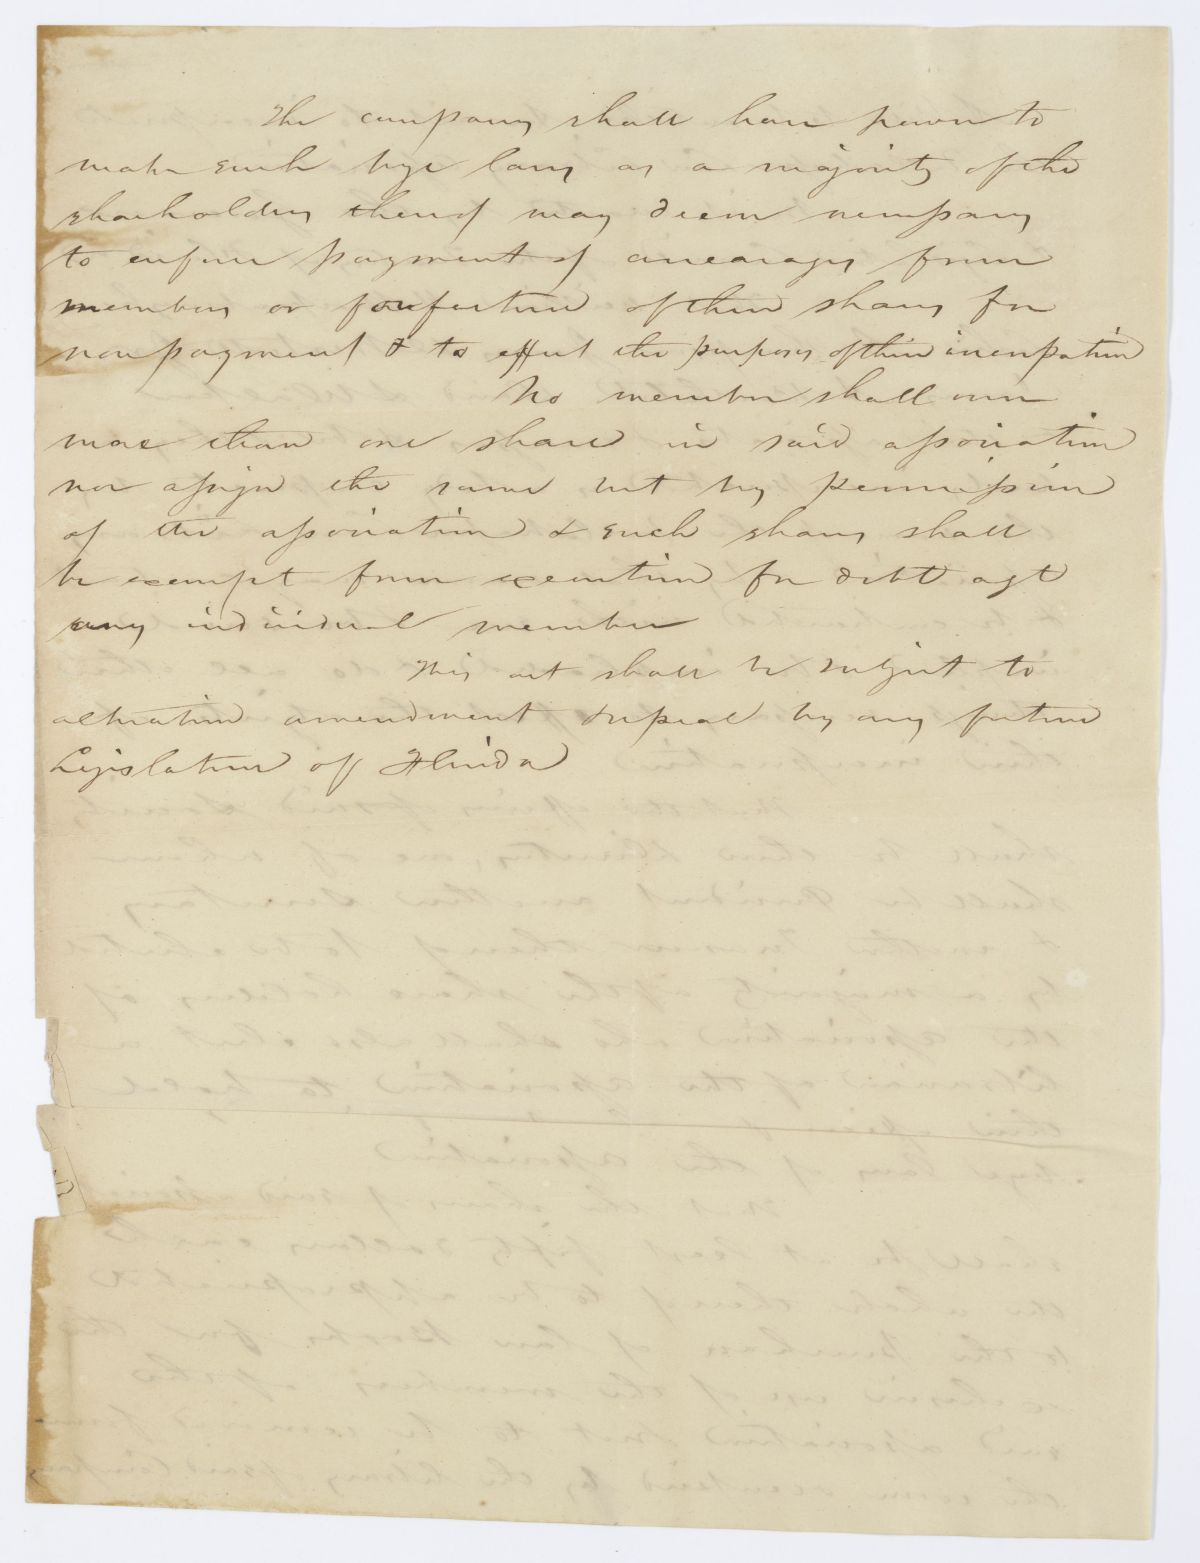 The company shall have power to
make such bye laws as a majority of the
shareholders thereof may deem necessary
to enforce payment of arrearages from
members or forfeiture of their shares for
non payment & to effect the purposes of their incorporation
No member shall own
more than one share in said association
nor assign the same but by permission
of the association & such shares shall
be exempt from execution for debt agt
any individual member
This act shall be subject to
alteration amendment & repeal by any future
Legislature of Florida